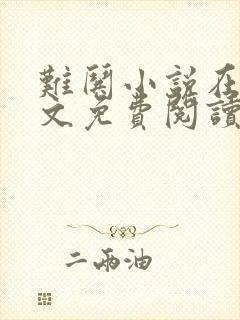 難鬧小說在
文免費閱讀
二兩油